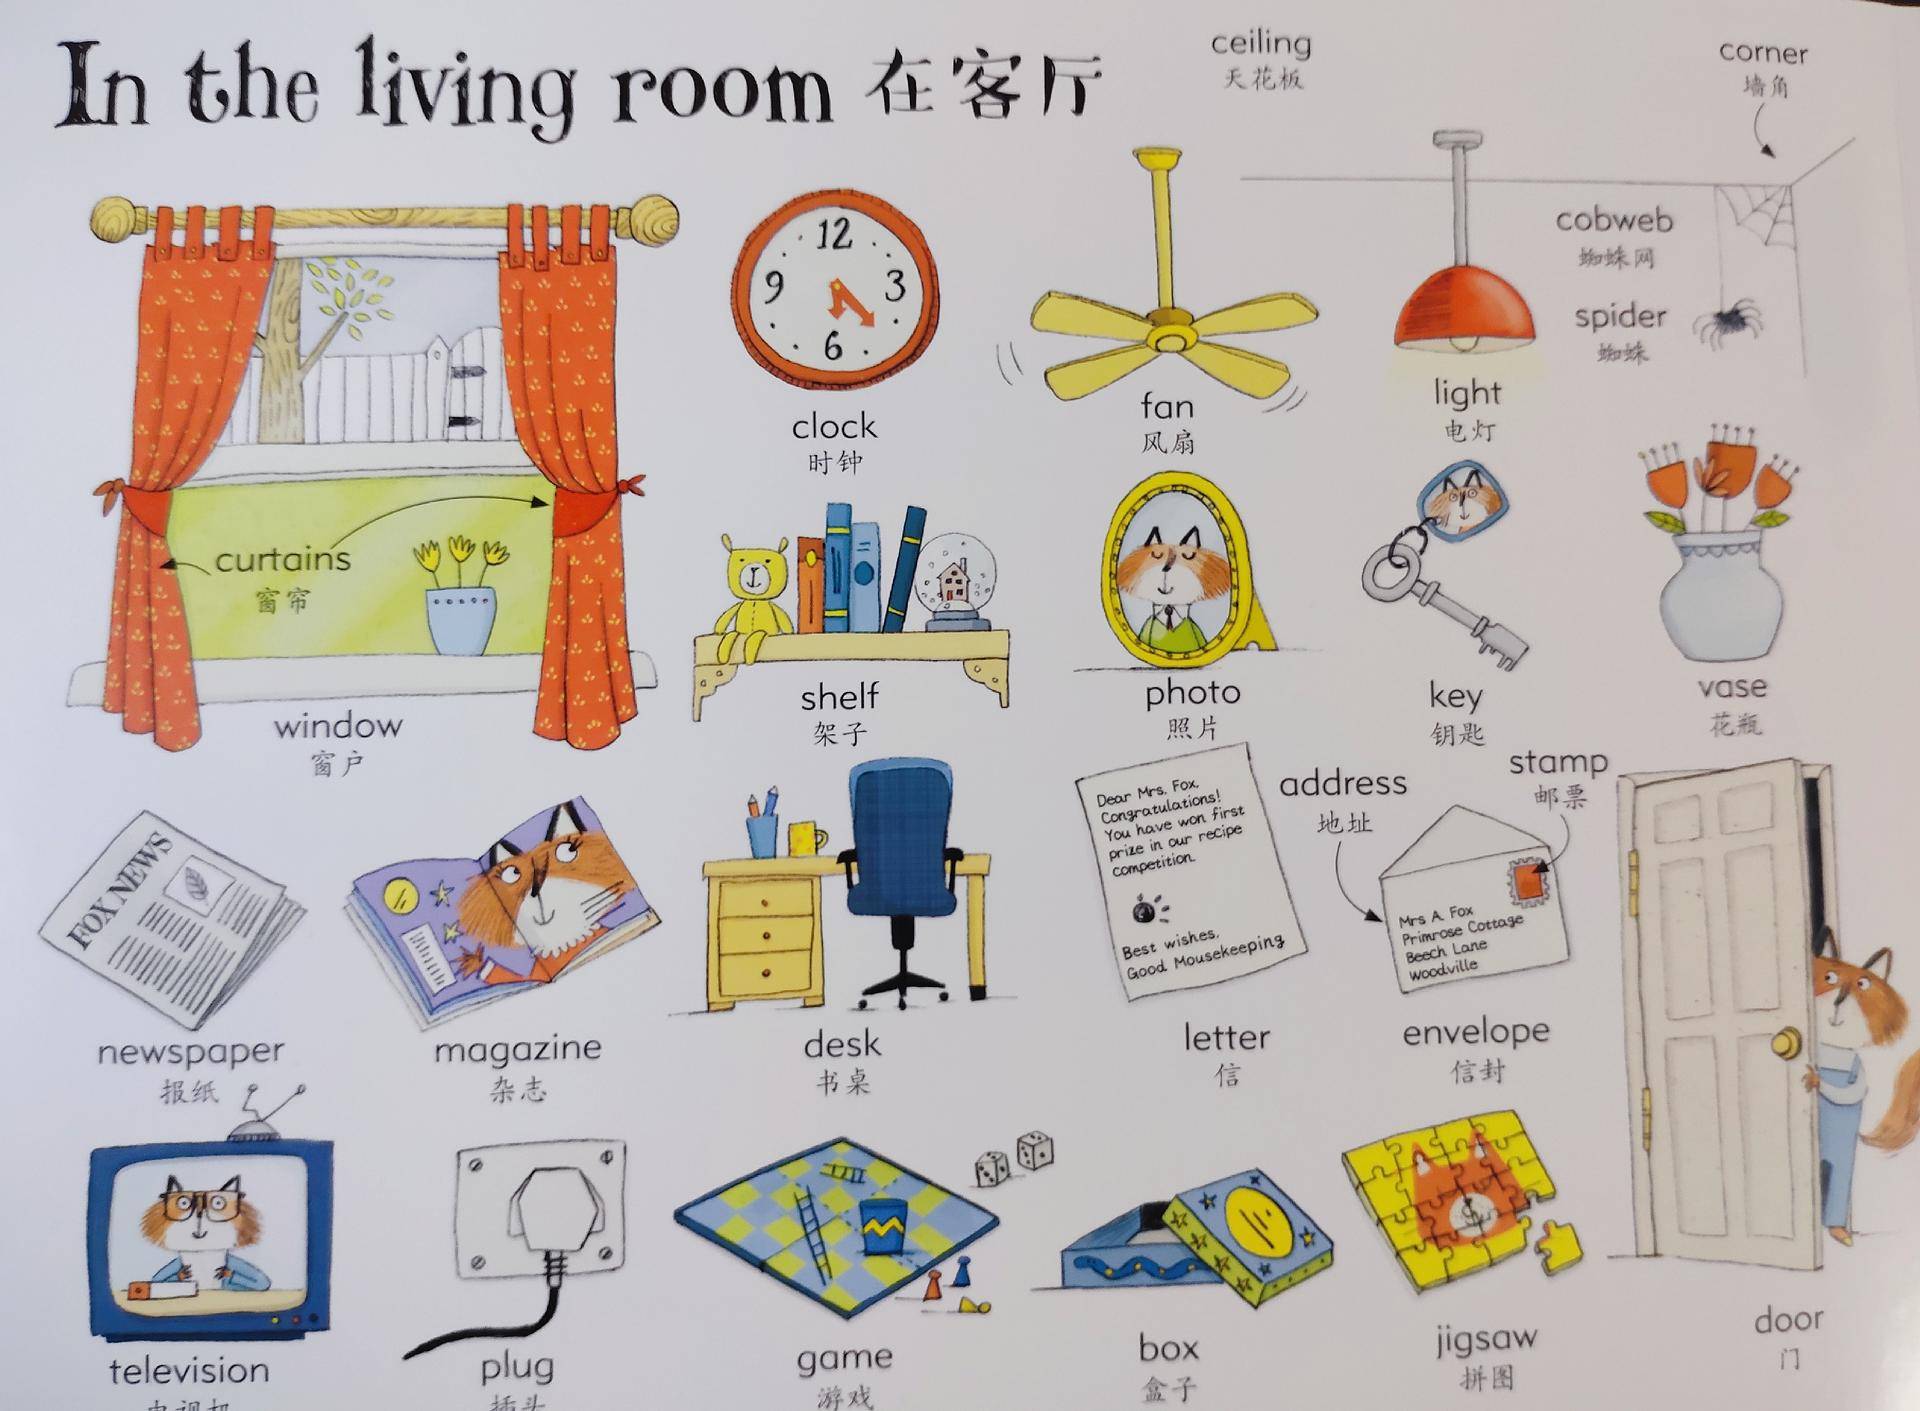 In the living room 在客厅
ceiling
天花板
corner
墙角
12
3
6
9
cobweb
蜘蛛网
spider
蜘蛛
clock
时钟
fan
风扇
light
电灯
curtains
窗帘
window
窗户
shelf
架子
photo
照片
key
钥匙
vase
花瓶
FOX NEWS
newspaper
报纸
magazine
杂志
desk
书桌
Dear Mrs. Fox,
Congratulations!
You have won first
prize in our recipe
competition.
Best wishes,
Good Mousekeeping
letter
信
address
地址
stamp
邮票
Mrs A. Fox
Primrose Cottage
Beech Lane
Woodville
envelope
信封
television
电视机
plug
插头
game
游戏
box
盒子
jigsaw
拼图
door
门